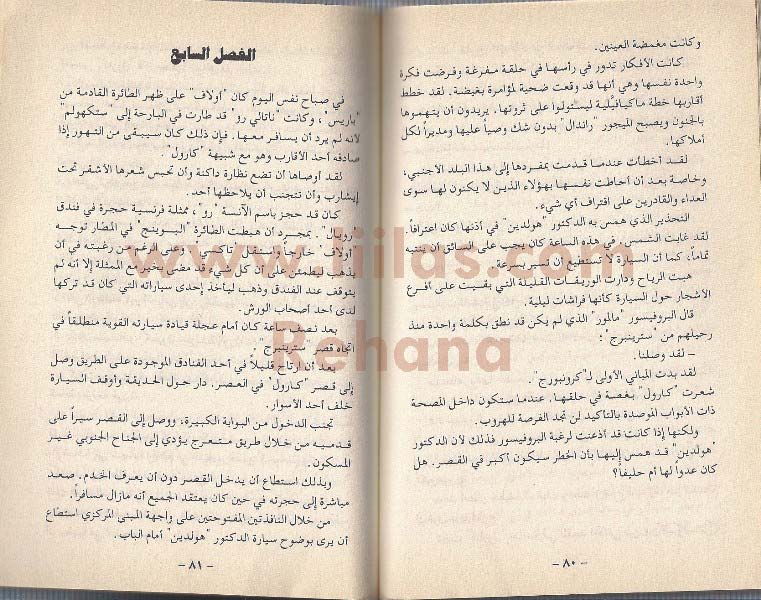 وكانت مغمضة العينين.
كانت الأفكار تدور في رأسها في حلقة مفرغة وفرضت فكرة
واحدة نفسها وهي أنها قد وقعت ضحية لمؤامرة بغيضة. لقد خطط
أقاربها خطة ماكيافيلية ليستولوا على ثروتها. يريدون أن يتهموها
بالجنون ويصبح الميجور "راندال" بدون شك وصياً عليها ومديراً لكل
أملاكها.
لقد أخطأت عندما قدمت بمفردها إلى هذا البلد الأجنبي،
وخاصة بعد أن أحاطت نفسها بهؤلاء الذين لا يكنون لها سوى
العداء والقادرين على اقتراف أي شيء.
التحذير الذي همس به الدكتور "هولدين" في أذنها كان اعترافاً.
لقد غابت الشمس. في هذه الساعة كان يجب على السائق أن ينتبه
تماماً، كما أن السيارة لا تستطيع أن تسير بسرعة.
هبت الرياح ودارت الوريقات القليلة التي بقيت على أفرع
الأشجار حول السيارة كأنها فراشات ليلية.
قال البروفيسور "مالمور" الذي لم يكن قد نطق بكلمة واحدة منذ
رحيلهم من "سترينبرج":
- لقد وصلنا.
لقد بدت المباني الأولى لـ "كرونبورج".
شعرت "كارول" بغصة في حلقها. عندما ستكون داخل المصحة
ذات الأبواب الموصدة بالتأكيد لن تجد الفرصة للهروب.
ولكنها إذا كانت قد أذعنت لرغبة البروفيسور فذلك لأن الدكتور
"هولدين" قد همس إليها بأن الخطر سيكون أكبر في القصر. هل
كان عدوا لها أم حليفاً؟
- ٨٠ -
الفصل السابع
في صباح نفس اليوم كان "أولاف" على ظهر الطائرة القادمة من
"باريس"، وكانت "ناتالي رو" قد طارت في البارحة إلى "ستكهولم"
لأنه لم يرد أن يسافر معها. فإن ذلك كان سيبقى من التهور إذا
صادفه أحد الأقارب وهو مع شبيهة "كارول".
لقد أوصاها أن تضع نظارة داكنة وأن تحبس شعرها الأشقر تحت
إيشارب وأن تتجنب أن يلاحظها أحد.
كان قد حجز باسم الآنسة "رو"، ممثلة فرنسية حجرة في فندق
"رويال". بمجرد أن هبطت الطائرة "البوينج" في المطار توجه
"أولاف" خارجاً واستقل "تاكسي" وعلى الرغم من رغبته في أن
يذهب ليطمئن على أن كل شيء قد مضى بخير مع الممثلة إلا أنه لم
يتوقف عند الفندق وذهب ليأخذ إحدى سياراته التي كان قد تركها
لدى أحد أصحاب الورش.
بعد نصف ساعة كان أمام عجلة قيادة سيارته القوية منطلقاً في
اتجاه قصر "سترينبرج".
بعد أن ارتاح قليلاً في أحد الفنادق الموجودة على الطريق وصل
إلى قصر "كارول" في العصر. دار حول الحديقة وأوقف السيارة
خلف أحد الأسوار.
تجنب الدخول من البوابة الكبيرة، ووصل إلى القصر سيراً على
قدميه من خلال طريق متعرج يؤدي إلى الجناح الجنوبي غير
المسكون.
وبذلك استطاع أن يدخل القصر دون أن يعرف الخدم. صعد
مباشرة إلى حجرته في حين كان يعتقد الجميع أنه مازال مسافراً.
من خلال النافذتين المفتوحتين على واجهة المبنى المركزي استطاع
أن يرى بوضوح سيارة الدكتور "هولدين" أمام الباب.
- ٨١ -
www.liilas.com
Rehana